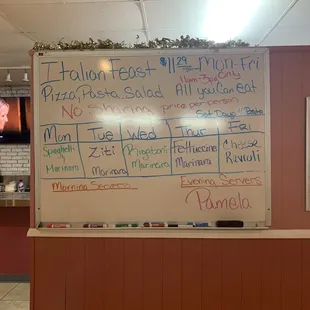 Italian Feast $11.29 Mon-Fri
Pizza, Pasta, Salad 11am-3pm Only
All you can Eat
No sharing price per person
Mon Tue Wed Thur Fri
Spaghetti Ziti Rigatoni Fettuccine Cheese
Marinara Marinara Marinara Marinara Ravioli
Morning Servers Evening Servers
Pamela